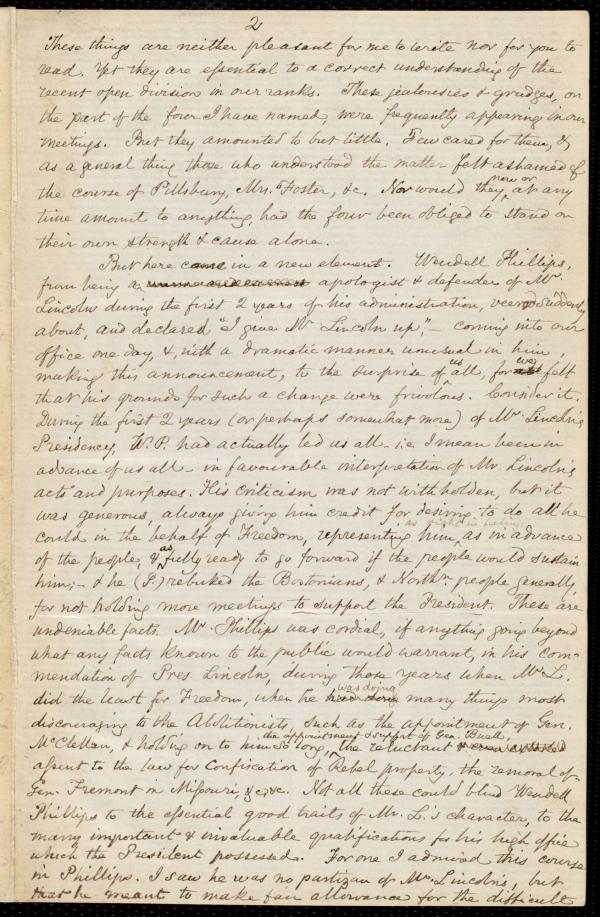 2
These things are neither pleasant for me to write nor for you to
read. Yet they are essential to a correct understanding of the
recent open division in our ranks. These jealousies & grudges, on
the part of the four I have named, were frequently appearing in our
meetings. But they amounted to but little. Few cared for them, &
as a general thing those who understood the matter felt ashamed of
the course of Pillsbury, Mrs. Foster, &c. Nor would they now or at any
time amount to anything, had the four been obliged to stand on
their own strength & cause alone.
But here came in a new element. Wendell Phillips,
from being a apologist & defender of Mr.
Lincoln during the first 2 years of his administration, veered suddenly
about, and declared "I give Mr Lincoln up", — coming into our
office one day, &, with a dramatic manner unusual in him,
making this announcement, to the surprise of us all, for we felt
that his grounds for such a change were frivolous. Consider it.
During the first 2 years (or perhaps somewhat more) of Mr. Lincoln's
Presidency, W.P. had actually led us all – i.e. I mean been in
advance of us all – in favourable interpretation of Mr. Lincoln's
acts and purposes. His criticism was not withholden, but it
was generous, always giving him credit for desiring to do all he
could in the behalf of Freedom, representing him as in advance
of the people, & as fully ready to go forward if the people would sustain
him; – & he (P.) rebuked the Bostonians, & Northn people generally,
for not holding more meetings to support the President. These are
undeniable facts. Mr. Phillips was cordial, if anything going beyond
what any facts known to the public would warrant, in his com-
mendation of Pres. Lincoln, during those years when Mr. L.
did the least for Freedom, when he was doing many things most
discouraging to the Abolitionists, such as the appointment of Gen.
McClellan, & holding on to him so long, the appointment & support of Gen. Buell, the reluctant
assent to the law for Confiscation of Rebel property, the removal of
Gen. Fremont in Missouri, &c. &c. Not all these could blind Wendell
Phillips to the essential good traits of Mr. L.'s character, to the
many important & invaluable qualifications for his high office
which the President possessed. For one I admired this course
in Phillips. I saw he was no partizan of Mr. Lincoln's, but
that he meant to make fair allowance for the difficult